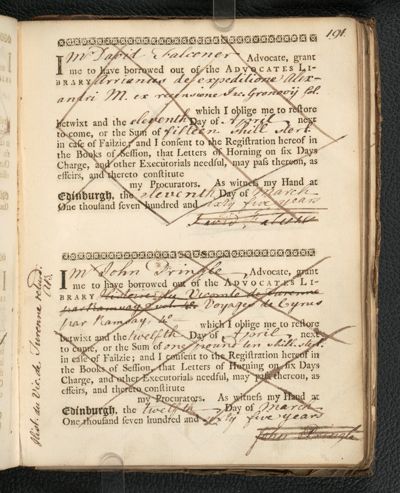 191.
I Mr David Falconer Advocate, grant
me to have borrowed out of the ADVOCATES LI-
BRARY Arrianus de expeditione Alex-
andri M. ex recensione Jac. Gronovij fol.
which I oblige me to restore
betwixt and the eleventh Day of April next
to come, or the Sum of fifteen shill sterl.
in case of Failzie; and I consent to the Registration hereof in
the Books of Session, that Letters of Horning on six Days
Charge, and other Executorials needful, may pass thereon, as
effeirs, and thereto constitute
my Procurators. As witness my Hand at
Edinburgh, the eleventh Day of March
One thousand seven hundred and sixty five years
David Falconer
I Mr John Pringle Advocate, grant
me to have borrowed out of the ADVOCATES LI-
BRARY Histoire du Vicomte de Turenne
par Ramsay Voyages de Cyrus
par Ramsay, 4o which I oblige me to restore
betwixt and the twelfth Day of April next
to come, or the Sum of one pound ten shill. sterl.
in case of Failzie; and I consent to the Registration hereof in
the Books of Session, that Letters of Horning on six Days
Charge, and other Executorials needful, may pass thereon, as
effeirs, and thereto constitute
my Procurators. As witness my Hand at
Edinburgh, the twelfth Day of March
One thousand seven hundred and sixty five years
John Pringle
Hist. du Vic. de Turenne retd.